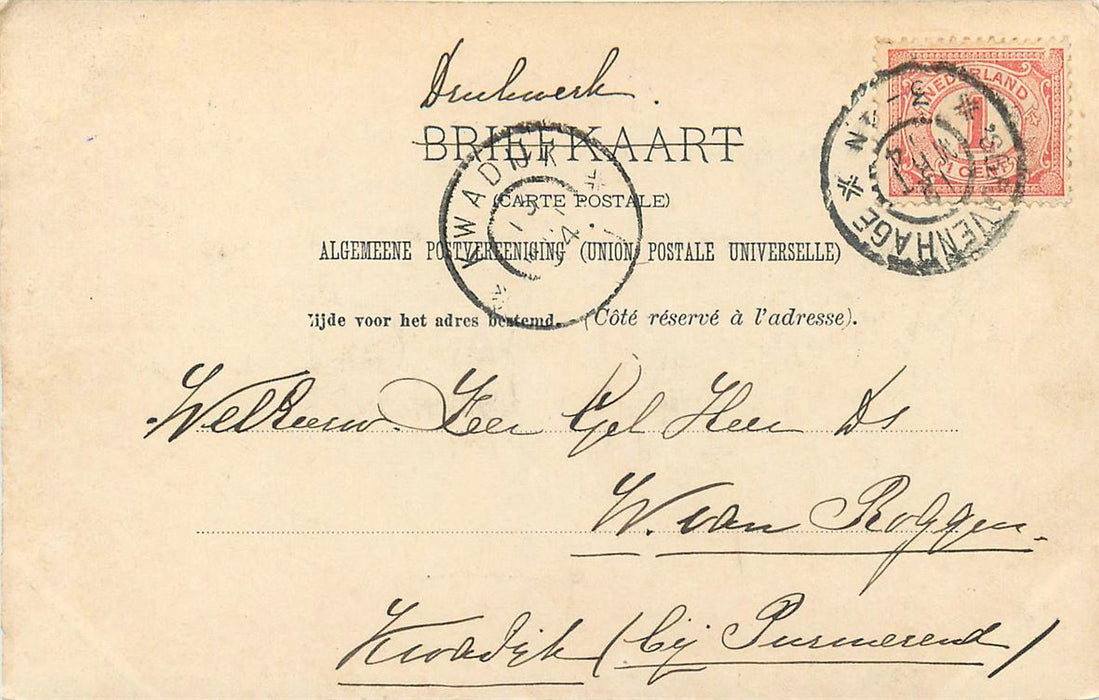 Drukwerk.
BRIEFKAART
(CARTE POSTALE)
ALGEMEENE POSTVEREENIGING (UNION POSTALE UNIVERSELLE)
Zijde voor het adres bestemd. (Côté réservé à l'adresse).
NEDERLAND
1
1 CENT
'S-GRAVENHAGE
KWADIJK
WelEerw. Zeer Gel Heer Ds
W. van Roggen.
Kwadijk (bij Purmerend)